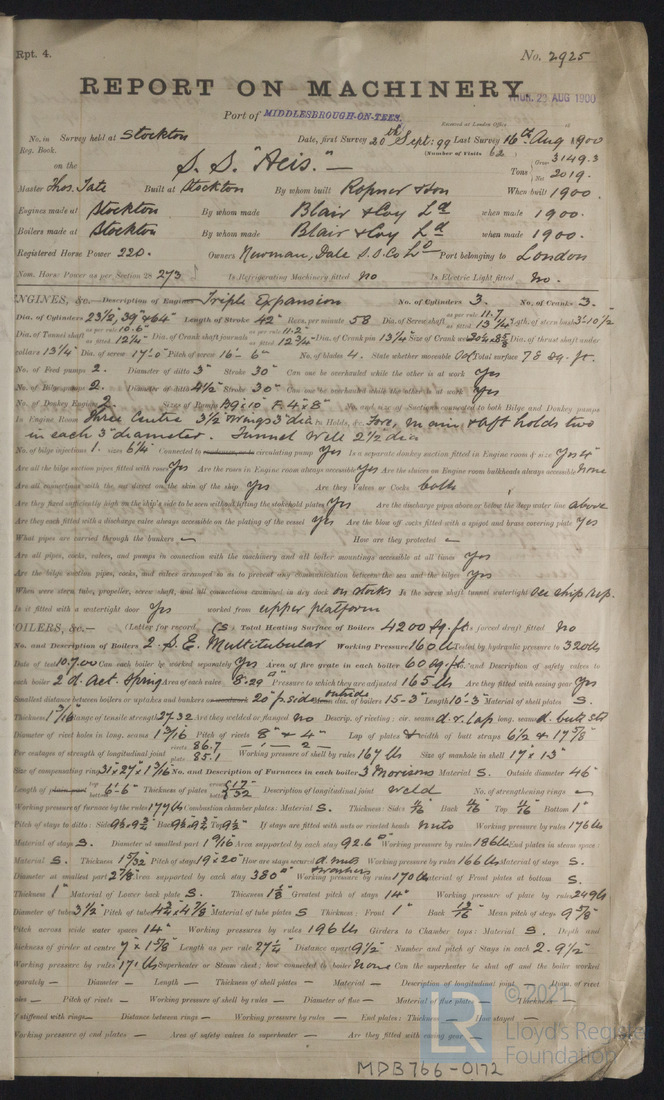 Rpt. 4. No. 2925
REPORT ON MACHINERY.
THUR. 23 AUG 1900
Port of MIDDLESBROUGH-ON-TEES.
Received at London Office
No. in Survey held at Stockton Date, first Survey 20th Sept: 99 Last Survey 16th Aug 1900
Reg. Book. (Number of Visits 62)
on the S. S. "Aeis." Tons Gross 3149.3 Net 2019.
Master Thos. Tate Built at Stockton By whom built Ropner & Son When built 1900.
Engines made at Stockton By whom made Blair & Coy Ld when made 1900.
Boilers made at Stockton By whom made Blair & Coy Ld when made 1900.
Registered Horse Power 220. Owners Newman, Dale S.S. Co Ld Port belonging to London
Nom. Horse Power as per Section 28 273 Is Refrigerating Machinery fitted No Is Electric Light fitted No.
ENGINES, &c.— Description of Engines Triple Expansion No. of Cylinders 3. No. of Cranks 3.
Dia. of Cylinders 23½, 39" & 64" Length of Stroke 42" Revs. per minute 58 Dia. of Screw shaft as per rule 11.7 as fitted 13¼ Lgth. of stern bush 3'-10½
Dia. of Tunnel shaft as per rule 10.6" as fitted 12¼ Dia. of Crank shaft journals as per rule 11.2" as fitted 12¾ Dia. of Crank pin 13¼ Size of Crank webs Dia. of thrust shaft under
collars 13¼ Dia. of screw 17'-0" Pitch of screw 16'-6" No. of blades 4. State whether moveable Total surface 78 sq. ft.
No. of Feed pumps 2. Diameter of ditto 3" Stroke 30" Can one be overhauled while the other is at work Yes
No. of Bilge pumps 2. Diameter of ditto 4½ Stroke 30" Can one be overhauled while the other is at work Yes
No. of Donkey Engines 2 Sizes of Pumps No. and size of Suctions connected to both Bilge and Donkey pumps
In Engine Room Three Centre 3½ wings 3" dia In Holds, &c. Fore, main & aft holds two
in each 3" diameter. Tunnel Well 2½ dia
No. of bilge injections 1. sizes 6¼ Connected to circulating pump Yes Is a separate donkey suction fitted in Engine room & size Yes 4
Are all the bilge suction pipes fitted with roses Yes Are the roses in Engine room always accessible Yes Are the sluices on Engine room bulkheads always accessible None
Are all connections with the sea direct on the skin of the ship Yes Are they Valves or Cocks both
Are they fixed sufficiently high on the ship's side to be seen without lifting the stokehold plates Yes Are the discharge pipes above or below the deep water line above
Are they each fitted with a discharge valve always accessible on the plating of the vessel Yes Are the blow off cocks fitted with a spigot and brass covering plate Yes
What pipes are carried through the bunkers — How are they protected —
Are all pipes, cocks, valves, and pumps in connection with the machinery and all boiler mountings accessible at all times Yes
Are the bilge suction pipes, cocks, and valves arranged so as to prevent any communication between the sea and the bilges Yes
When were stern tube, propeller, screw shaft, and all connections examined in dry dock on stocks Is the screw shaft tunnel watertight see ship rep.
Is it fitted with a watertight door Yes worked from upper platform
BOILERS, &c.— (Letter for record, (S) Total Heating Surface of Boilers 4200 sq. ft. Is forced draft fitted No
No. and Description of Boilers 2. S. E. Multitubular Working Pressure 160 lb Tested by hydraulic pressure to 320 lb
Date of test 10.7.00 Can each boiler be worked separately Yes Area of fire grate in each boiler 60 sq. ft. No. and Description of safety valves to
each boiler 2 d. Act. Spring Area of each valve 8.29" Pressure to which they are adjusted 165 lb Are they fitted with easing gear Yes
Smallest distance between boilers or uptakes and bunkers 20" p. side outside dia. of boilers 15-3" Length 10'-3" Material of shell plates S.
Thickness 1 3/16 Range of tensile strength 27.32 Are they welded or flanged no Descrip. of riveting: cir. seams d. r. lap long. seams d. butt str
Diameter of rivet holes in long. seams 1 3/16 Pitch of rivets 8" & 4" Lap of plates & width of butt straps 6½ & 17⅝
Per centages of strength of longitudinal joint rivets 86.7 plate 85.1 Working pressure of shell by rules 167 lb Size of manhole in shell 17" x 13"
Size of compensating ring 31 x 27 x 1 3/16 No. and Description of Furnaces in each boiler 3 Morisons Material S. Outside diameter 46"
Length of plain part 6'-6" Thickness of plates Description of longitudinal joint weld No. of strengthening rings —
Working pressure of furnace by the rules 177 lb Combustion chamber plates: Material S. Thickness: Sides Back Top Bottom 1"
Pitch of stays to ditto: Sides Back Top 9½ If stays are fitted with nuts or riveted heads nuts Working pressure by rules 176 lb
Material of stays S. Diameter at smallest part 1 9/16 Area supported by each stay 92.6" Working pressure by rules 186 lb End plates in steam space:
Material S. Thickness 1 5/32 Pitch of stays 19 x 20" How are stays secured d. nuts & washers Working pressure by rules 166 lb Material of stays S.
Diameter at smallest part 2⅞ Area supported by each stay 380" Working pressure by rules 170 lb Material of Front plates at bottom S.
Thickness 1" Material of Lower back plate S. Thickness Greatest pitch of stays 14" Working pressure of plate by rules 249 lb
Diameter of tubes 3½ Pitch of tubes 4¾ x 4⅞ Material of tube plates S Thickness: Front 1" Back Mean pitch of stays 9⅝
Pitch across wide water spaces 14" Working pressures by rules 196 lb Girders to Chamber tops: Material S. Depth and
thickness of girder at centre 7" x 1⅝ Length as per rule 27¼ Distance apart 9½ Number and pitch of Stays in each 2. 9½"
Working pressure by rules 171 lb Superheater or Steam chest; how connected to boiler None Can the superheater be shut off and the boiler worked
separately — Diameter — Length — Thickness of shell plates — Material — Description of longitudinal joint — Diam. of rivet
holes — Pitch of rivets — Working pressure of shell by rules — Diameter of flue — Material of flue plates — Thickness —
If stiffened with rings — Distance between rings — Working pressure by rules — End plates: Thickness — How stayed —
Working pressure of end plates — Area of safety valves to superheater — Are they fitted with easing gear —
© 2021
LR
Lloyd's Register
Foundation
MDB766-0172